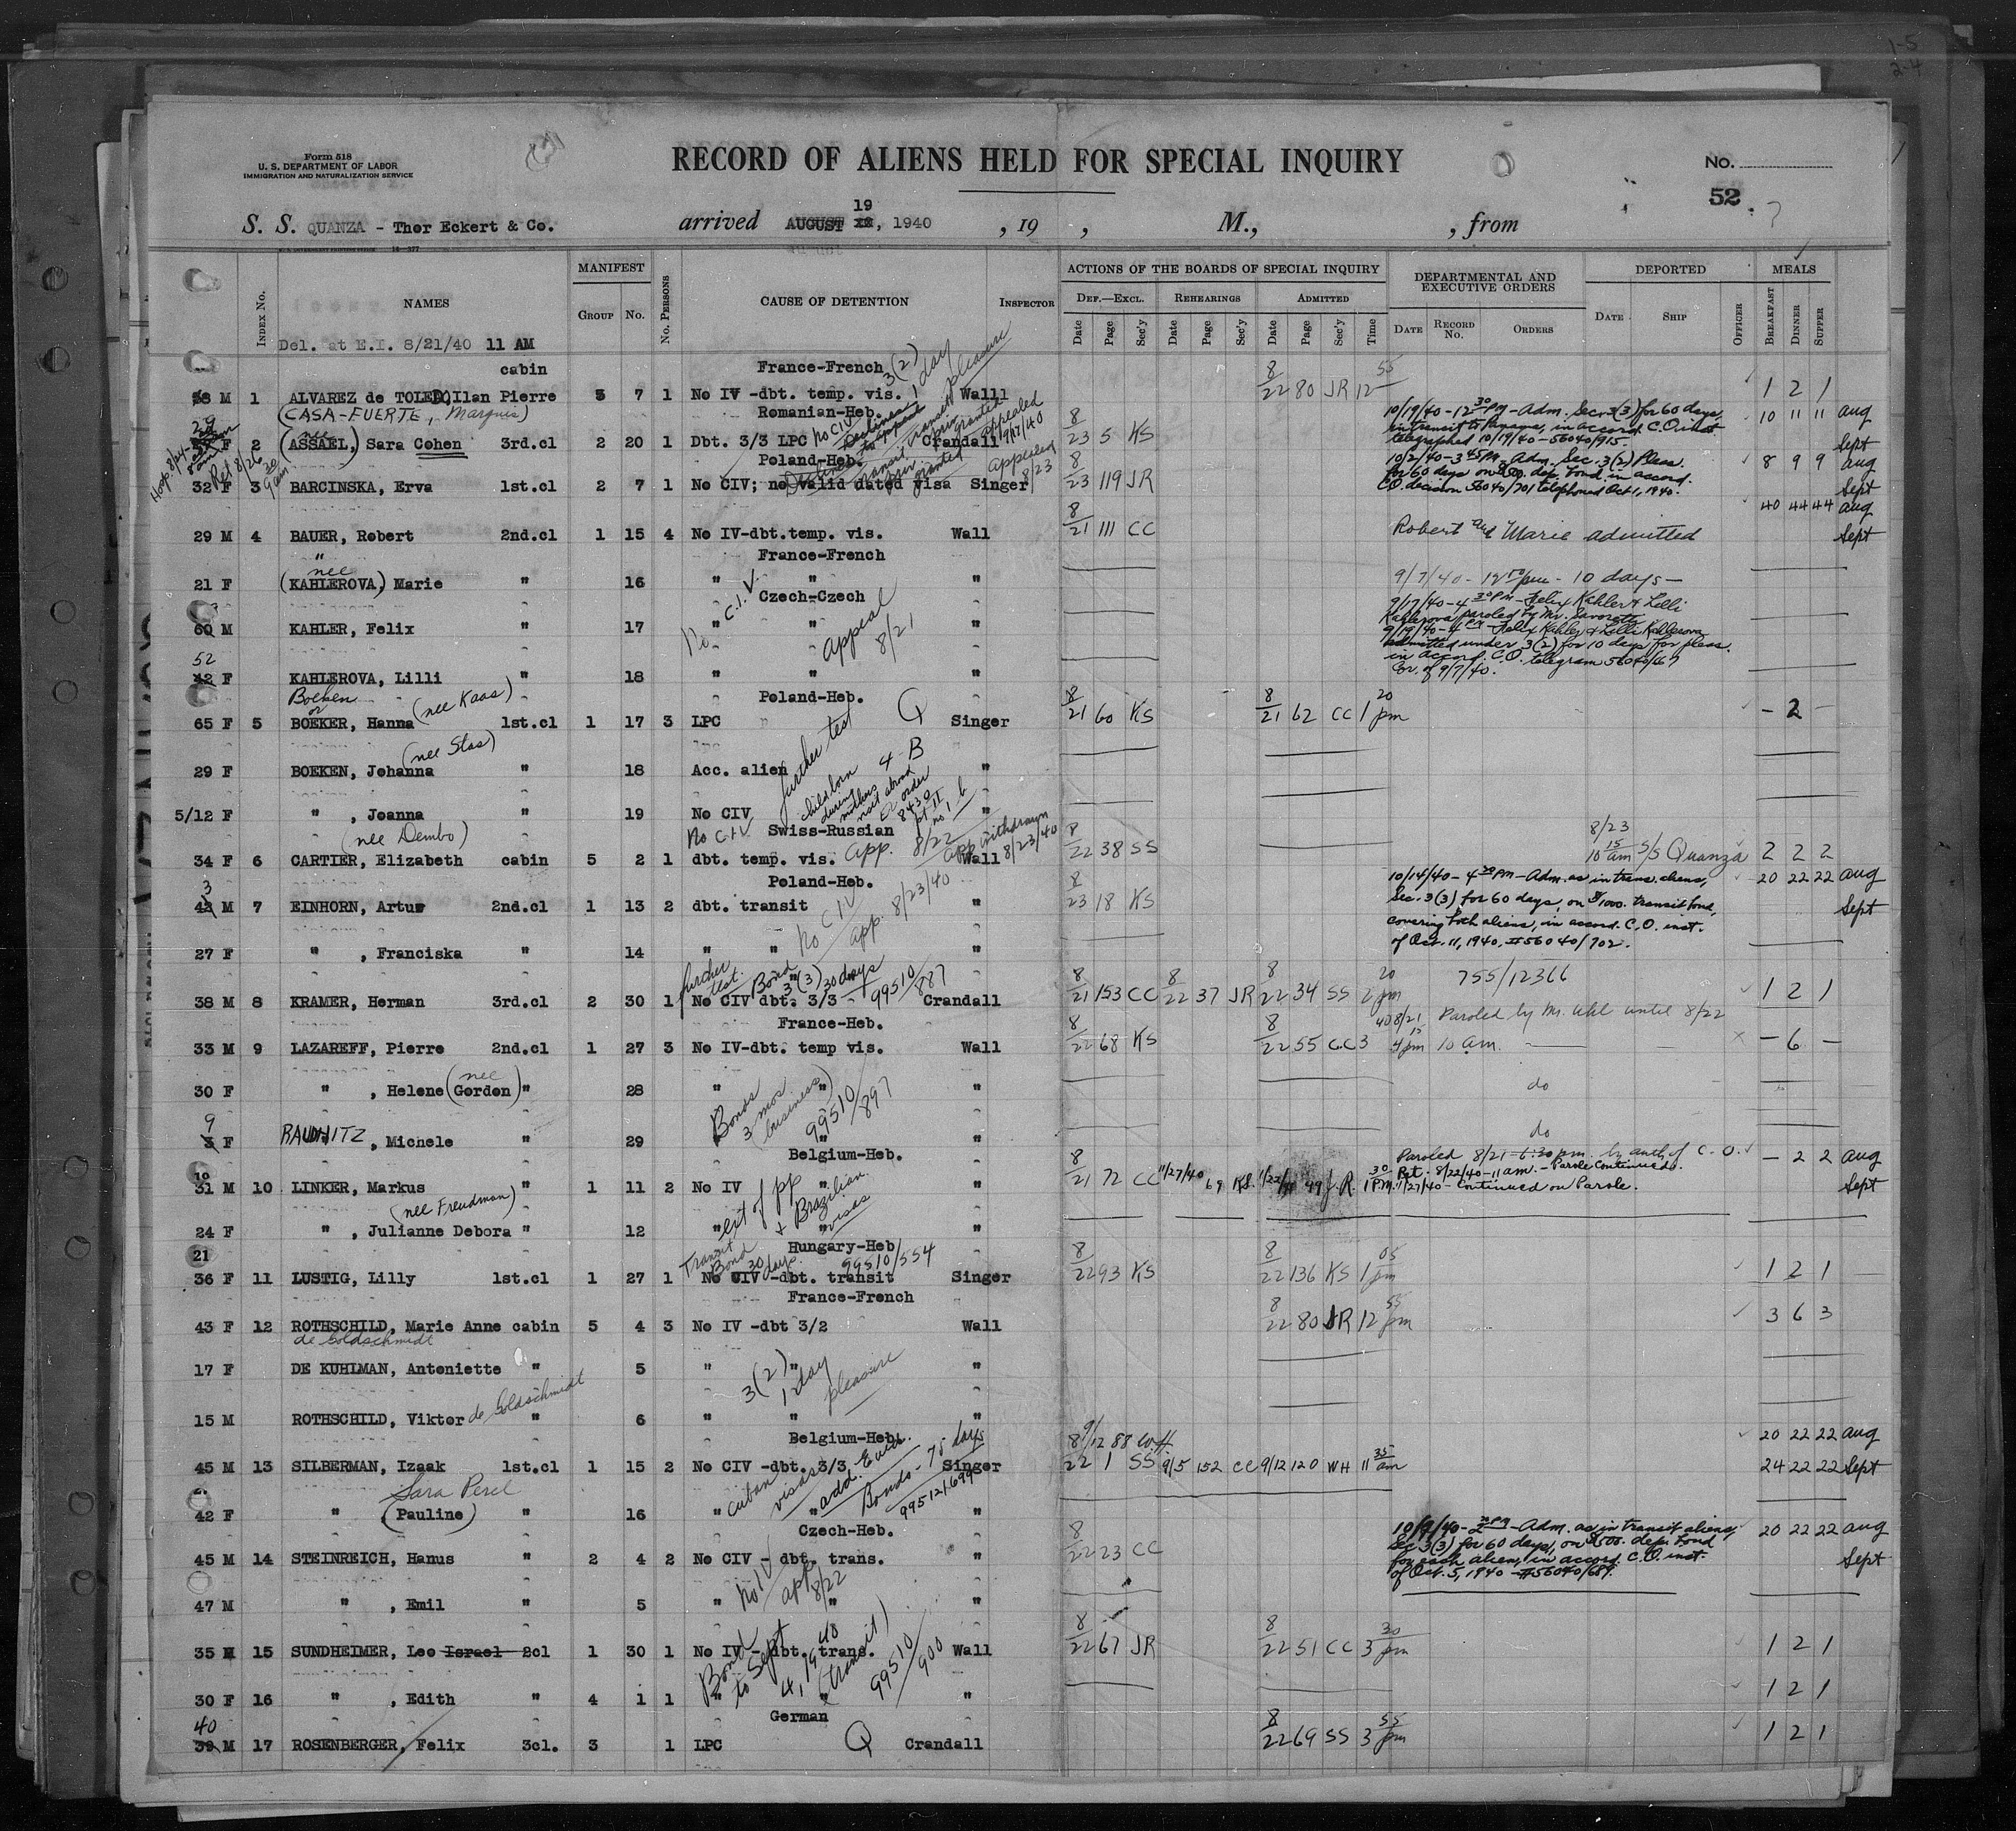 1-5
2-4
Form 518
U. S. DEPARTMENT OF LABOR
IMMIGRATION AND NATURALIZATION SERVICE
RECORD OF ALIENS HELD FOR SPECIAL INQUIRY
No.
52
S. S. QUANZA - Thor Eckert & Co. arrived AUGUST 19, 1940 , 19 , M., , from
16-577
INDEX No. NAMES MANIFEST GROUP No. No. PERSONS CAUSE OF DETENTION INSPECTOR
ACTIONS OF THE BOARDS OF SPECIAL INQUIRY DEPARTMENTAL AND EXECUTIVE ORDERS DEPORTED MEALS
DEF.—EXCL. REHEARINGS ADMITTED
Date Page Sec'y Date Page Sec'y Date Page Sec'y Time DATE RECORD No. ORDERS DATE SHIP OFFICER BREAKFAST DINNER SUPPER
Del. at E.I. 8/21/40 11 AM
cabin France-French 3(2) 1 day pleasure
M 1 ALVAREZ de TOLEDO, Ilan Pierre 3 7 1 No IV -dbt. temp. vis. Wall 8/22 80 JR 12 55 1 2 1
(CASA-FUERTE, Marquis) Romanian-Heb. No CIV
10/19/40-12 30 PM-Adm. Sec. 3(3) for 60 days,
in transit to Panama, in accord. C.O. inst
telegraphed 10/19/40-56040/915-
29 F 2 (nee ASSAEL), Sara Cohen 3rd.cl 2 20 1 Dbt. 3/3 LPC Crandall appealed 9/17/40 8/23 5 KS 10 11 11 Aug Sept
Hosp. 8/24 Ret 8/26 9 30 am
Poland-Heb. appealed 8/23
10/2/40-3 45 PM-Adm. Sec. 3(2) Pleas.
for 60 days on $500. dep. bond, in accord.
C.O. decision 56040/701 telephoned Oct 1, 1940.
32 F 3 BARCINSKA, Erva 1st.cl 2 7 1 No CIV; no valid dated visa Singer 8/23 119 JR 8 9 9 Aug Sept
29 M 4 BAUER, Robert 2nd.cl 1 15 4 No IV-dbt.temp. vis. Wall 8/21 111 CC Robert and Marie admitted 40 44 44 Aug Sept
France-French
21 F (nee KAHLEROVA) Marie " 16 " " " 9/7/40 - 12 50 pm - 10 days -
No C.I.V. Czech-Czech appeal 8/21
60 M KAHLER, Felix " 17 " " "
9/17/40-4 30 PM-Felix Kahler & Lilli
Kahlerova paroled by Mr. Savoretti
9/19/40-4 PM-Felix Kahler & Lilli Kahlerova
admitted under 3(2) for 10 days for pleas.
in accord. C.O. telegram 56040/667
Gr. of 9/7/40.
52
42 F KAHLEROVA, Lilli " 18 " " "
Boeken or Poland-Heb.
65 F 5 BOEKER, Hanna (nee Kaas) 1st.cl 1 17 3 LPC Q Singer 8/21 60 KS 8/21 62 CC 1 20 pm - 2 -
(nee Stas) further test
29 F BOEKEN, Johanna " 18 Acc. alien 4-B "
child born during mothers visit abroad Ex order 8430 pt II no 1 b
5/12 F " , Joanna " 19 No CIV "
(nee Dembo) No C.I.V. Swiss-Russian app. 8/22 app withdrawn 8/23/40
34 F 6 CARTIER, Elizabeth cabin 5 2 1 dbt. temp. vis. Wall 8/22 38 SS 8/23 10 15 am S/S Quanza 2 2 2
Poland-Heb.
10/14/40-4 30 PM-Adm. as in trans. aliens,
Sec. 3(3) for 60 days, on $1000. transit bond,
covering both aliens, in accord. C.O. inst.
of Oct. 11, 1940. #56040/702.
M 7 EINHORN, Artur 2nd.cl 1 13 2 dbt. transit " 8/23 18 KS 20 22 22 Aug Sept
No CIV app. 8/23/40
27 F " , Franciska " 14 " " "
further test. Bond 3(3) 30 days 99510/887
38 M 8 KRAMER, Herman 3rd.cl 2 30 1 No CIV dbt. 3/3 Crandall 8/21 153 CC 8/22 37 JR 8/22 34 SS 20 pm 755/12366 1 2 1
France-Heb.
33 M 9 LAZAREFF, Pierre 2nd.cl 1 27 3 No IV-dbt. temp vis. Wall 8/22 68 KS 8/22 55 CC 3 40 8/21 4 15 pm Paroled by Mr. Uhl until 8/22 10 am. - 6 -
30 F " , Helene (nee Gordon) " 28 " " " do
Bonds 3 mos (business) 99510/897
9
3 F RAUDNITZ, Michele " 29 " " do
Belgium-Heb.
Paroled 8/21-6:30 pm. by auth of C.O.
Ret. 8/22/40-11 am. - Parole Continued.
11/27/40-Continued on Parole.
31 M 10 LINKER, Markus " 1 11 2 No IV " " 8/21 72 CC 11/27/40 69 KS 49 J R 1 30 PM - 2 2 Aug Sept
(nee Freudman) ext of pp + Brazilian visas
24 F " , Julianne Debora " 12 " " "
21 Transit Bond 30 days Hungary-Heb 99510/554
36 F 11 LUSTIG, Lilly 1st.cl 1 27 1 No CIV -dbt. transit Singer 8/22 93 KS 8/22 136 KS 1 05 pm 1 2 1
France-French
43 F 12 ROTHSCHILD, Marie Anne cabin 5 4 3 No IV -dbt 3/2 Wall 8/22 80 JR 12 55 pm 3 6 3
de Goldschmidt
17 F DE KUHLMAN, Antoniette " 5 " " "
3(2) 1 day pleasure
15 M ROTHSCHILD, Viktor de Goldschmidt " 6 " " "
Belgium-Heb. 9/12 88 W.H. 20 22 22 Aug
45 M 13 SILBERMAN, Izaak 1st.cl 1 15 2 No CIV -dbt. 3/3 Singer 8/22 1 SS 9/5 152 CC 9/12 120 WH 11 35 am 24 22 22 Sept
Sara Perel Cuban visas add. Evid. Bonds - 75 days 99512/699
42 F " , (Pauline) " 16 " " "
Czech-Heb.
10/9/40-2 30 PM-Adm. as in transit aliens,
Sec 3(3) for 60 days, on $500. dep. bond
for each alien, in accord. C.O. inst.
of Oct. 5, 1940 - #56040/689.
45 M 14 STEINREICH, Hanus " 2 4 2 No CIV - dbt. trans. " 8/22 23 CC 20 22 22 Aug Sept
No IV app 8/22
47 M " , Emil " 5 " " "
35 M 15 SUNDHEIMER, Leo Israel 2cl 1 30 1 No IV -dbt. trans. Wall 8/22 67 JR 8/22 51 CC 3 30 pm 1 2 1
Bond to Sept 4, 1940 (transit) 99510/900
30 F 16 " , Edith " 4 1 1 " " " 1 2 1
40 German
39 M 17 ROSENBERGER, Felix 3cl. 3 1 LPC Q Crandall 8/22 69 SS 3 55 pm 1 2 1